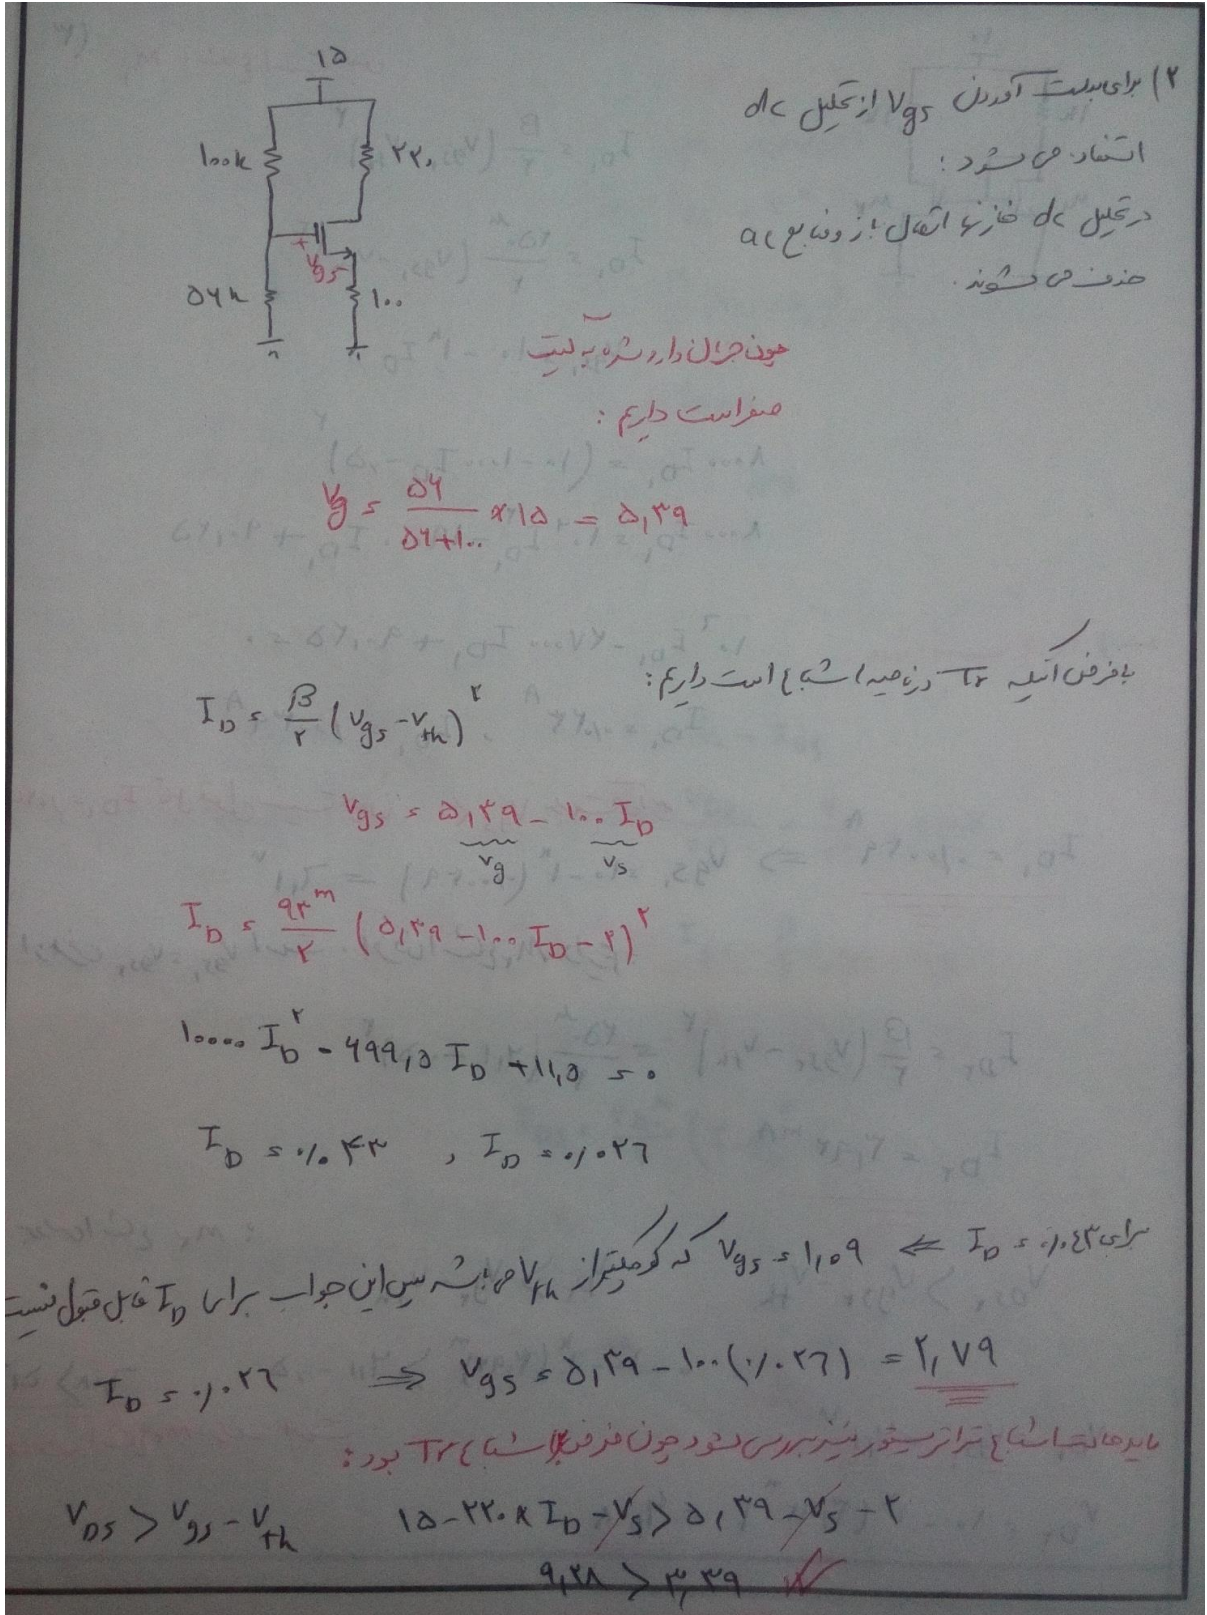 ۲) برای بدست آوردن Vgs از تحلیل dc
استفاده می شود :
در تحلیل dc خازنها اتصال باز و منابع ac
حذف می شوند.
۱۵
۱۰۰k
۲۲۰
+
Vgs
-
۵۶k
۱۰۰
چون جریان وارد شده به گیت
صفر است داریم :
Vg = ۵۶ / ۵۶+۱۰۰ × ۱۵ = ۵,۳۹
با فرض آنکه Tr در ناحیه اشباع است داریم :
I_D = β/۲ (Vgs - Vth)^۲
Vgs = ۵,۳۹ - ۱۰۰ I_D
Vg Vs
I_D = ۹۳^m/۲ (۵,۳۹ - ۱۰۰ I_D - ۲)^۲
۱۰۰۰۰ I_D^۲ - ۶۹۹,۵ I_D + ۱۱,۵ = ۰
I_D = ۰/۰۴۳ , I_D = ۰/۰۲۶
برای I_D = ۰/۰۴۳ ⇐ Vgs = ۱,۰۹ که کوچکتر از Vth می باشد پس این جواب برای I_D قابل قبول نیست
I_D = ۰/۰۲۶ ⇒ Vgs = ۵,۳۹ - ۱۰۰(۰/۰۲۶) = ۲,۷۹
باید حالت اشباع ترانزیستور نیز بررسی شود چون فرض اشباع Tr بود :
V_DS > Vgs - Vth ۱۵ - ۲۲۰ × I_D - Vs > ۵,۳۹ - Vs - ۲
۹,۲۸ > ۳,۳۹ ✓